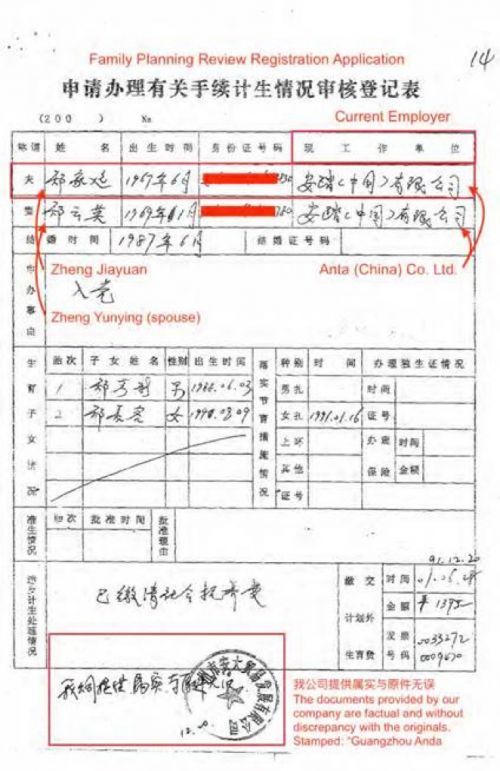 Family Planning Review Registration Application
14
申请办理有关手续计生情况审核登记表
Current Employer
(200 ) №
称谓 姓名 出生时间 身份证号码 现工作单位
夫 郑家远 1967年6月 安踏(中国)有限公司
妻 郑云英 1969年11月 安踏(中国)有限公司
结婚时间 1987年6月 结婚证号码
Zheng Jiayuan
Anta (China) Co. Ltd.
申办事由 入党
Zheng Yunying (spouse)
生育子女情况 胎次 子女姓名 性别 出生时间 落实节育措施情况 种别 时间 办理独生证情况
1 男 男扎 时间
2 女 女扎 1991.01.16 证号
上环 办理 时间
其他 保险 金额
证号
准生情况 胎次 批准时间 批准理由
91.12.20
计划外生育费 缴交 时间
已缴清社会抚养费
金额 ¥
发票号码 0033272
我公司提供属实与原件无误
我公司提供属实与原件无误
The documents provided by our
company are factual and without
discrepancy with the originals.
Stamped: "Guangzhou Anda